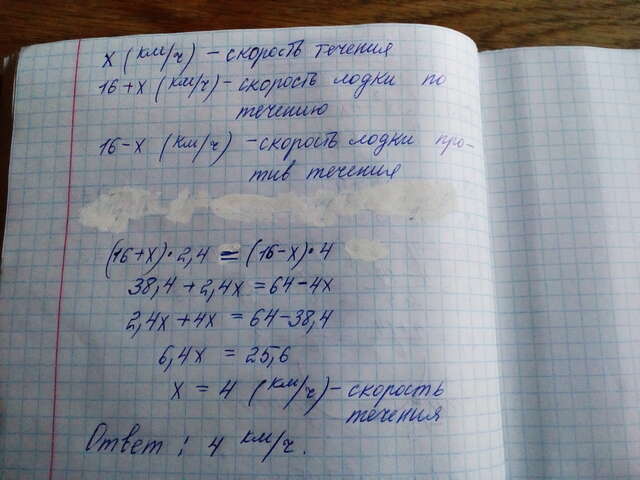 x (км/ч) – скорость течения
16+x (км/ч) – скорость лодки по
течению
16-x (км/ч) – скорость лодки про-
тив течения
(16+x)·2,4 = (16-x)·4
38,4 + 2,4x = 64-4x
2,4x + 4x = 64-38,4
6,4x = 25,6
x = 4 (км/ч) – скорость
течения
Ответ: 4 км/ч.